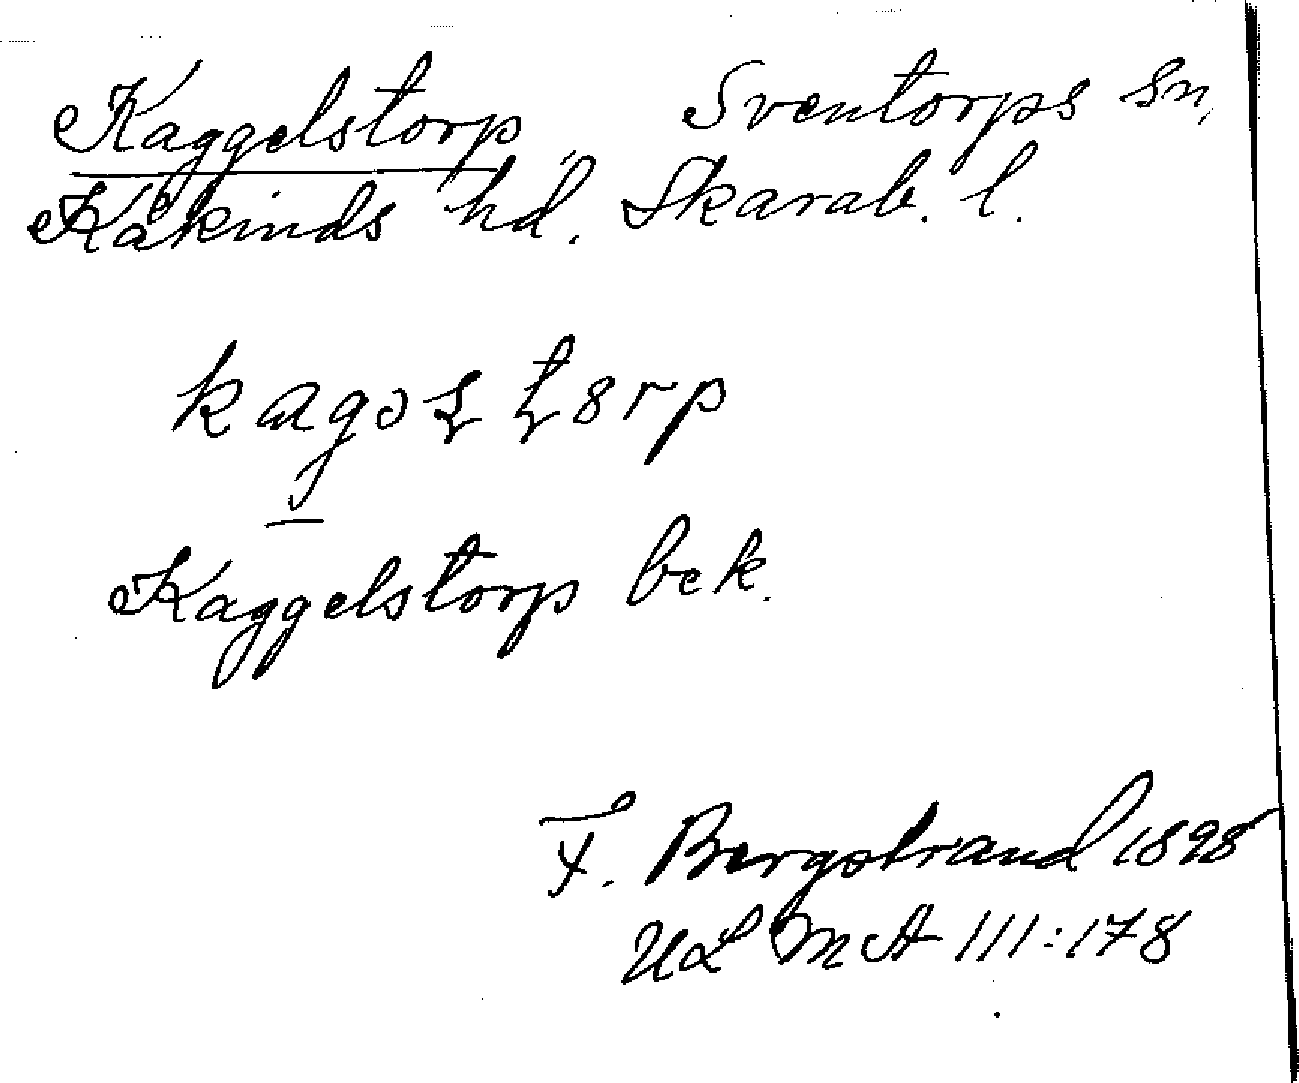 Kaggelstorp Sventorps sn,
Kåkinds hd. Skarab. l.
Kaggelstorp bek.
F. Bergstrand 1898
ULMA 111:178